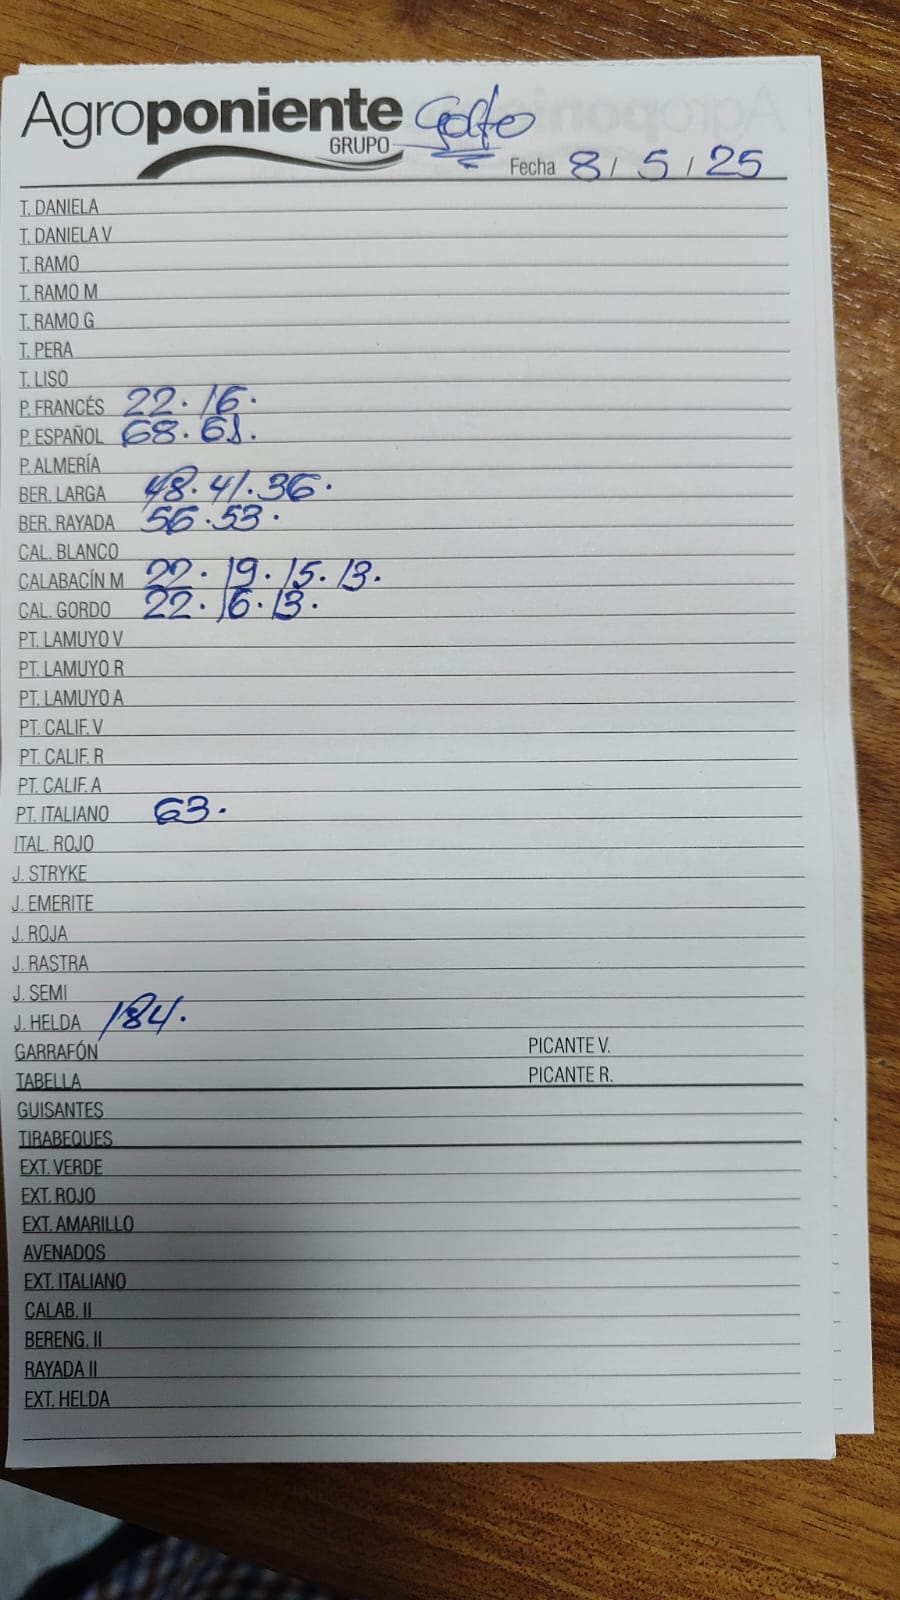 Agroponiente Golfo
GRUPO
Fecha 8 / 5 / 25
T. DANIELA
T. DANIELA V
T. RAMO
T. RAMO M
T. RAMO G
T. PERA
T. LISO
P. FRANCÉS 22. 16.
P. ESPAÑOL 68. 61.
P. ALMERÍA
BER. LARGA 48. 41. 36.
BER. RAYADA 56. 53.
CAL. BLANCO
CALABACÍN M 22. 19. 15. 13.
CAL. GORDO 22. 16. 13.
PT. LAMUYO V
PT. LAMUYO R
PT. LAMUYO A
PT. CALIF. V
PT. CALIF. R
PT. CALIF. A
PT. ITALIANO 63.
ITAL. ROJO
J. STRYKE
J. EMERITE
J. ROJA
J. RASTRA
J. SEMI
J. HELDA 184.
GARRAFÓN PICANTE V.
TABELLA PICANTE R.
GUISANTES
TIRABEQUES
EXT. VERDE
EXT. ROJO
EXT. AMARILLO
AVENADOS
EXT. ITALIANO
CALAB. II
BERENG. II
RAYADA II
EXT. HELDA